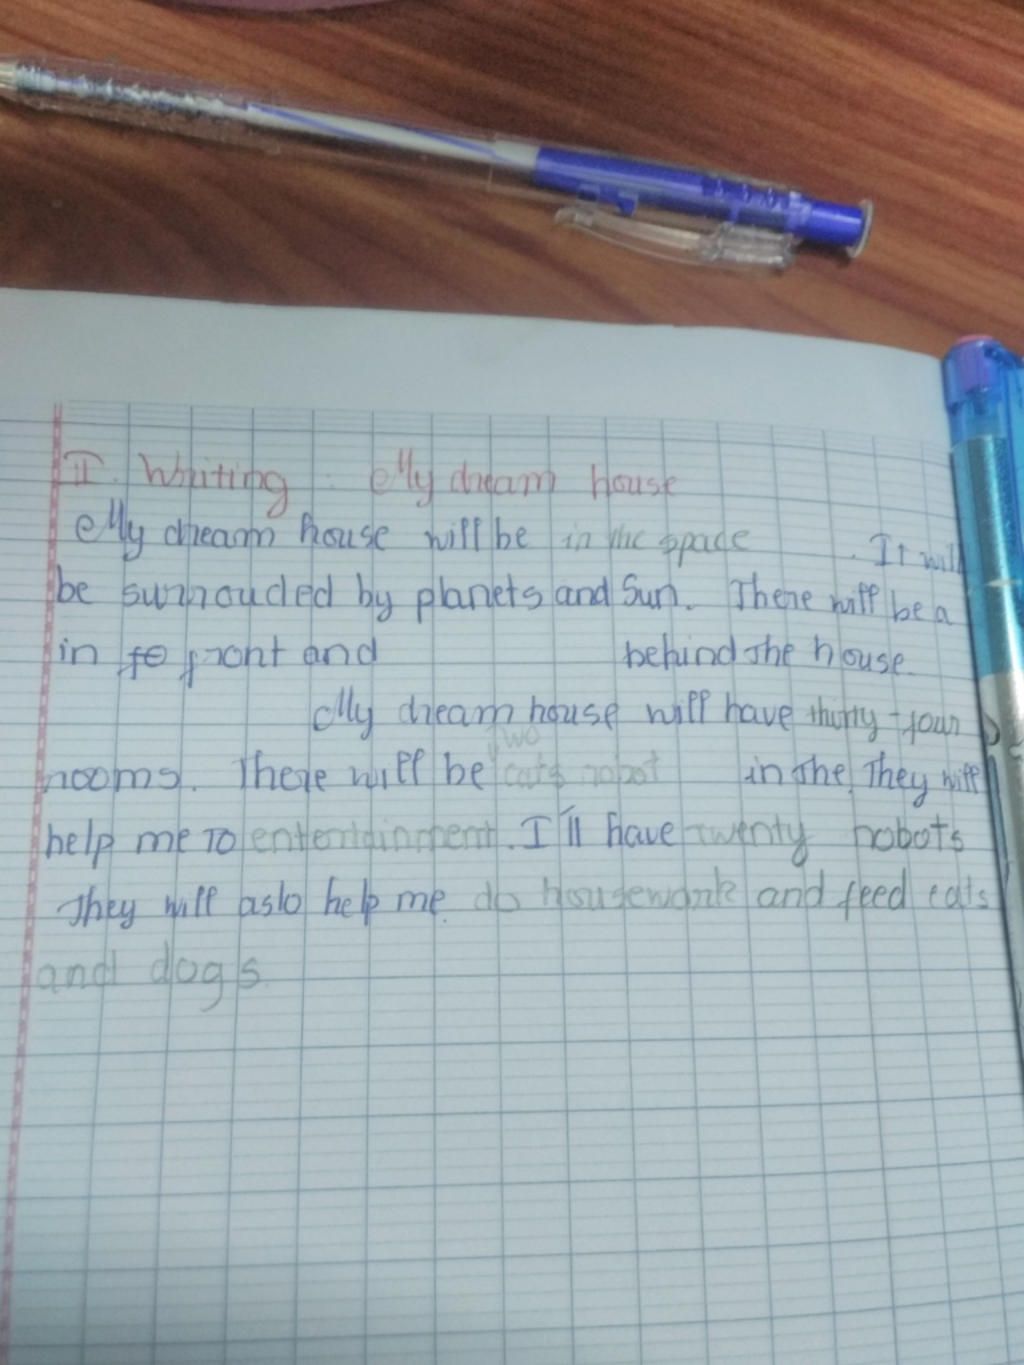 II. Writing : My dream house
My dream house will be in the space . It will
be surrouded by planets and Sun. There will be a
in to front and behind the house.
My dream house will have thirty-four
two
rooms. There will be cats robot in the. They will
help me To entertainment. I'll have twenty robots
They will aslo help me do housework and feed cats
and dogs